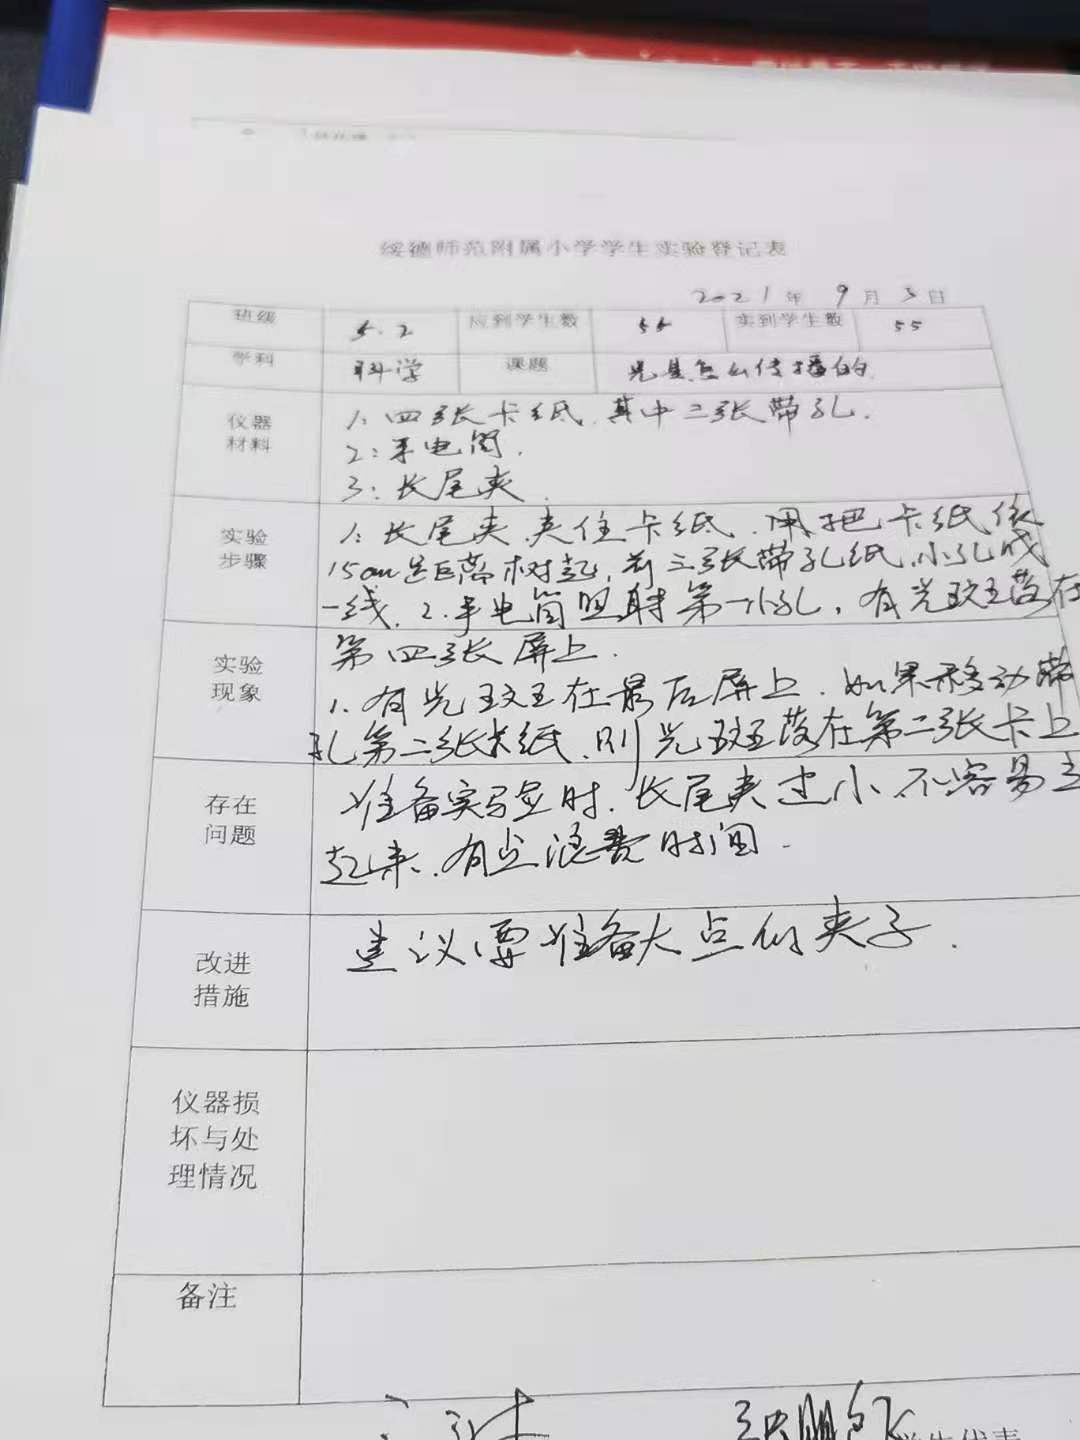 绥德师范附属小学学生实验登记表
2021年 9月 3日
班级 5.2 应到学生数 55 实到学生数 55
学科 科学 课题 光是怎么传播的
仪器材料 1: 四张卡纸.其中三张带孔.
2: 手电筒.
3: 长尾夹.
实验步骤 1: 长尾夹夹住卡纸.用把卡纸依
15cm距离树起,前三张带孔纸,小孔成
一线. 2.手电筒照射第一小孔,有光斑落在
第四张屏上.
实验现象 1.有光斑在最后屏上.如果移动带
孔第二张卡纸.则光斑落在第二张卡上
存在问题 准备实验时.长尾夹过小.不容易立
起来.有点浪费时间.
改进措施 建议要准备大点的夹子.
仪器损坏与处理情况
备注
学生代表